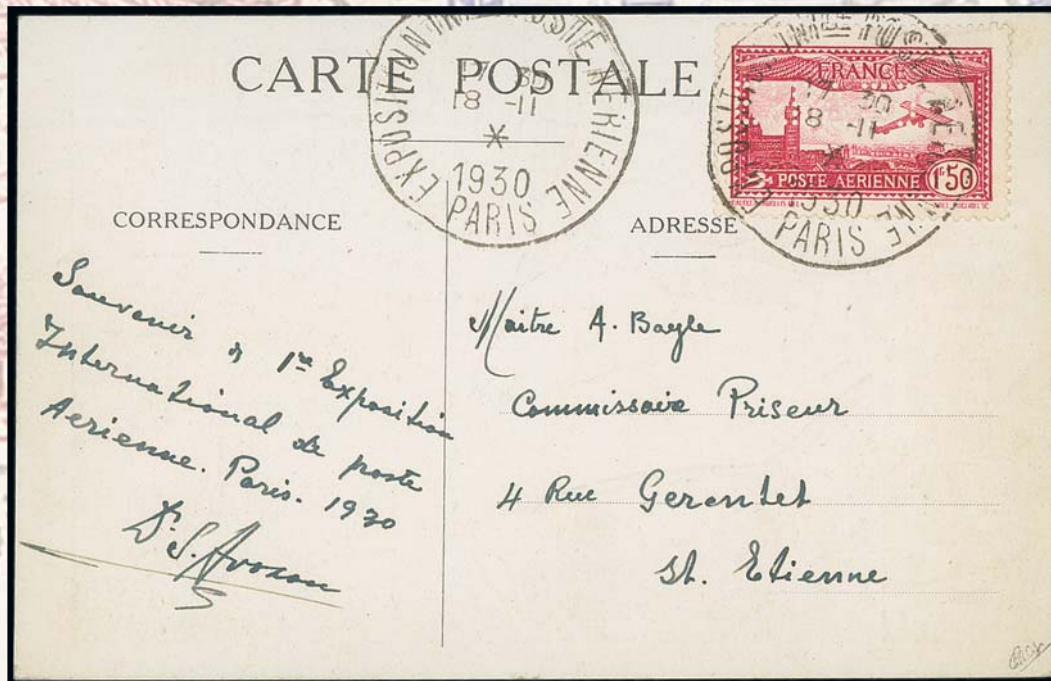 CARTE POSTALE
EXPOSITION INTLE POSTE AERIENNE
17 30
18 -11
*
1930
PARIS
FRANCE
POSTE AERIENNE
1F50
EXPOSITION INTLE POSTE AERIENNE
17 30
18 -11
*
1930
PARIS
CORRESPONDANCE
Souvenir 1re Exposition
International de poste
Aerienne. Paris. 1930
ADRESSE
Maitre A. Bayle
Commissaire Priseur
4 Rue Gerentet
St. Etienne